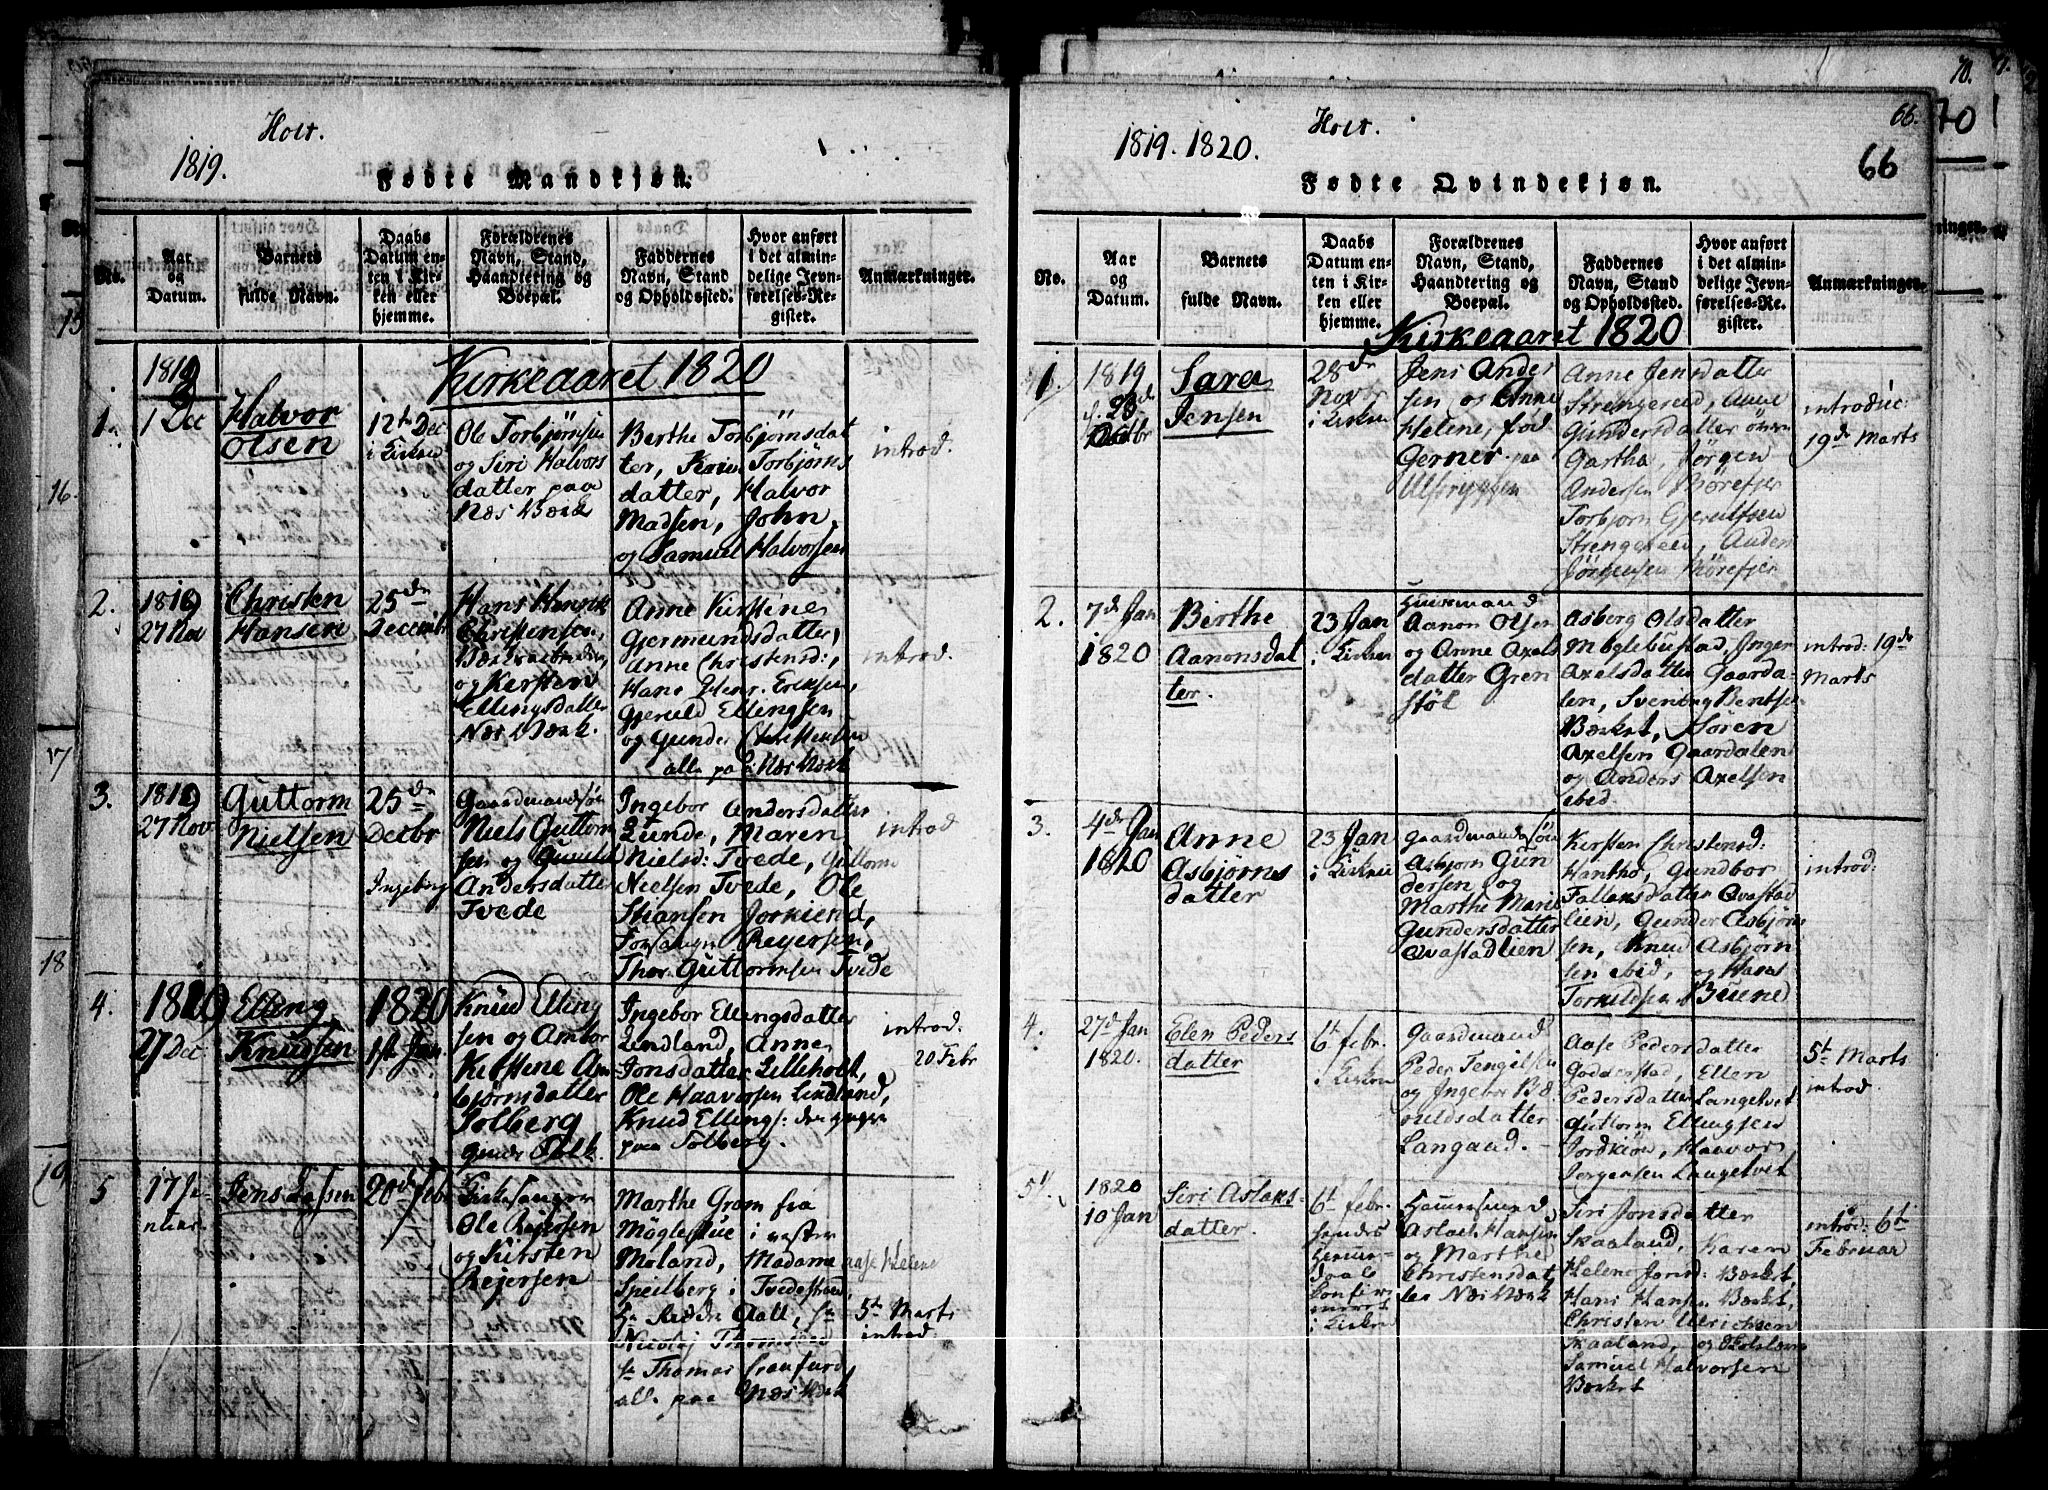 Holt.
1819.
Fødte Mandkjøn.
No.
Aar
og
Datum.
Barnets
fulde Navn.
Daabs
Datum en-
ten i Kir-
ken eller
hjemme.
Forældrenes
Navn, Stand,
Haandtering og
Boepæl.
Faddernes
Navn, Stand
og Opholdssted.
Hvor anført
i det almin-
delige Jevn-
førelses-Re-
gister.
Anmærkninger.
Kirkeaaret 1820
1.
1819
1 Dec
Halvor
Olsen
12t Dec
i Kirken
Ole Torbjørnsen
og Siri Halvors
datter paa
Næs Værk
Berthe Torbjørnsdat
ter, Karen Torbjørns
datter, Halvor
Madsen, John
og Samuel Halvorsen
introd.
2.
1819
27 Nov
Christen
Hansen
25de
Decemb
Hans Henrik
Christensen,
og Kirsten
Ellingsdatter
Næs Værk.
Anne Kirstine
Gjermundsdatter,
Anne Christensd:,
Hans Henr. Eriksen,
Gjeruld Ellingsen
og Gunder Christensen
alle paa Næs Værk
introd.
3.
1819
27 Nov
Guttorm
Nielsen
25de
Decbr
Ingeborg
Gaardmandsøn
Niels Guttorm
sen og Gunild
Andersdatter
Tvede
Ingebor Andersdatter
Lunde, Maren
Nielsd: Tvede, Guttorm
Nielsen Tvede, Ole
Stiansen Jorkiend,
Forsanger Reyersen,
Thor Guttormsen Tvede
introd
4.
1819
27 Dec
Elling
Knudsen
1820
1st Jan
Knud Elling
sen og Ambor
Kirstene As
bjørnsdatter
Solberg
gavde Folk.
Ingebor Ellingsdatter
Lindland, Anne
Jonsdatter Lilleholt,
Ole Haavorsen Lindland,
Knud Ellings: den yngre
paa Solberg.
introd.
20 Febr
5
17 Ja-
nuar.
Jens Lassen
20de Febr
Kirkesanger
Ole Rejersen
og Kirsten
Rejersen
Marthe Grom fra
Møglestue i vestre
Moland, Madame
Speilberg i Tvedestrand,
Hr Reeder Aall, Hr
Nicolaj Thommesen
Hr Thomas Cranfurd
alle paa Næs Værk
Aase Helene
5te Marts
introd.
Holt.
1819. 1820.
66.
66
70.
70
Fødte Qvindekjøn.
No.
Aar
og
Datum.
Barnets
fulde Navn.
Daabs
Datum en-
ten i Kir-
ken eller
hjemme.
Forældrenes
Navn, Stand,
Haandtering og
Boepæl.
Faddernes
Navn, Stand
og Opholdssted.
Hvor anført
i det almin-
delige Jevn-
førelses-Re-
gister.
Anmærkninger.
Kirkeaaret 1820
1.
1819
d. 23de
Octbr
Sara
Jensen
28de
Nov
i Kirken
Jens Ander
sen og Anne
Helene, fød
Gerner paa
Ulsryggen
Anne Jensdatter
Strengereid, Anne
Gundersdatter øvre
Gartha, Jørgen
Andersen Mørefjer
Torbjorn Gjerulfsen
Strengereid, Anders
Jørgensen Mørefjer
introduc:
19de Marts
2.
7de Jan
1820
Birthe
Aanonsdat
ter.
23 Jan
i Kirken
Huusmand
Aanon Olsen
og Anne Axels
datter Gren
støl
Asberg Olsdatter
Møglebustad, Inger
Axelsdatter Gaarda-
len, Svening Bentsen
Værket, Søren
Axelsen Gaardalen
og Anders Axelsen
ibid.
introd: 19de
Marts
3.
4de Jan
1820
Anne
Asbjørns
datter
23 Jan
i Kirken
Gaardmandssøn
Asbjørn Gun
dersen og
Marthe Marie
Gundersdatter
Qvastadlien
Kirsten Christensd:
Hantho, Gundbor
Tallaksdatter Qvastad
lien, Gunder Asbjørn
sen, Knud Asbjørn
sen ibid, og Hans
Torkildsen Buene
introd:
4.
27d Jan
1820.
Elen Peders
datter
6t febr.
i Kirken
Gaardmand
Peder Tengelsen
og Ingebor Bæ
ruldsdatter
Langaard.
Aase Pedersdatter
Godderstad, Ellen
Pedersdatter Langetvet
Guttorm Ellingsen
Jordkiøn, Haavor
Jørgensen Langetvet
5t Marts
introd.
5.
1820
10 Jan
Siri Aslaks-
datter.
6t febr.
hjemme-
daab
Confir-
meret
i Kirken
Huusmand
Aslach Hansen
og Marthe
Christensdat
ter Næs Værk
Siri Jonsdatter
Skaaland, Karen
Helene Jonsd: Værket,
Hans Hansen Værket,
Christen Ulrichsen
Skaaland, og
Samuel Halvorsen
Værket
introd: 6t
Februar
15
16.
17
18
19